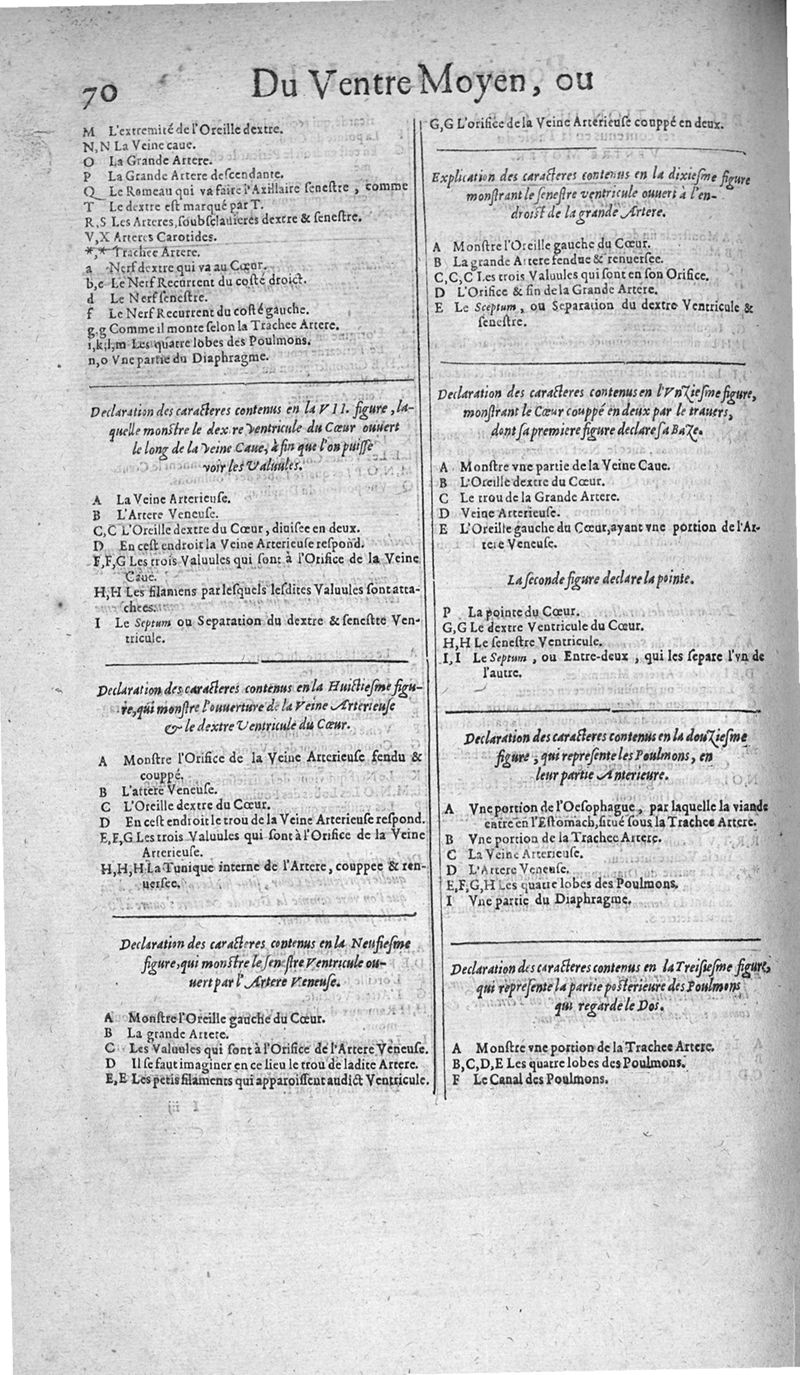 70 Du Ventre Moyen, ou
M L'extremité de l'Oreille dextre.
N, N La Veine caue.
O La Grande Artere.
P La Grande Artere descendante.
Q Le Rameau qui va faire l'Axillaire senestre, comme
T Le dextre est marqué par T.
R, S Les Arteres, soubsclauieres dextre & senestre.
V, X Arteres Carotides.
*,* Trachee Artere.
a Nerf dextre qui va au Cœur.
b, c Le Nerf Recurrent du costé droict.
d Le Nerf senestre.
f Le Nerf Recurrent du costé gauche.
g. g Comme il monte selon la Trachee Artere.
i, k, l, m Les quatre lobes des Poulmons.
n, o Vne partie du Diaphragme.
Declaration des caracteres contenus en la VII. figure, la-
quelle monstre le dextre Ventricule du Cœur ouuert
le long de la Veine Caue, à fin que l'on puisse
voir les Valuules.
A La Veine Arterieuse.
B L'Artere Veneuse.
C, C L'Oreille dextre du Cœur, diuisee en deux.
D En cest endroit la Veine Arterieuse respond.
F, F, G Les trois Valuules qui sont à l'Orifice de la Veine
Caue.
H, H Les filamens par lesquels lesdites Valuules sont atta-
chees.
I Le Septum ou Separation du dextre & senestre Ven-
tricule.
Declaration des caracteres contenus en la Huictiesme figu-
re, qui monstre l'ouuerture de la Veine Arterieuse
& le dextre Ventricule du Cœur.
A Monstre l'Orifice de la Veine Arterieuse fendu &
couppé.
B L'attere Veneuse.
C L'Oreille dextre du Cœur.
D En cest endroit le trou de la Veine Arterieuse respond.
E, F, G Les trois Valuules qui sont à l'Orifice de la Veine
Arterieuse.
H, H, H La Tunique interne de l'Artere, couppee & ren-
uersee.
Declaration des caracteres contenus en la Neufiesme
figure, qui monstre le senestre Ventricule ou-
uert par l'Artere Veneuse.
A Monstre l'Oreille gauche du Cœur.
B La grande Artere.
C Les Valuules qui sont à l'Orifice de l'Artere Veneuse.
D Il se faut imaginer en ce lieu le trou de ladite Artere.
E, E Les petis filaments qui apparoissent audict Ventricule.
G, G L'orifice de la Veine Arterieuse couppé en deux.
Explication des caracteres contenus en la dixiesme figure
monstrant le senestre ventricule ouuert à l'en-
droist de la grande Artere.
A Monstre l'Oreille gauche du Cœur.
B La grande Artere fendue & renuersee.
C, C, C Les trois Valuules qui sont en son Orifice.
D L'Orifice & fin de la Grande Artere.
E Le Sceptum, ou Separation du dextre Ventricule &
senestre.
Declaration des caracteres contenus en l'Vnziesme figure,
monstrant le Cœur couppé en deux par le trauers,
dont sa premiere figure declare sa Baze.
A Monstre vne partie de la Veine Caue.
B L'Oreille dextre du Cœur.
C Le trou de la Grande Artere.
D Veine Arterieuse.
E L'Oreille gauche du Cœur, ayant vne portion de l'Ar-
tere Veneuse.
La seconde figure declare la pointe.
P La pointe du Cœur.
G, G Le dextre Ventricule du Cœur.
H, H Le senestre Ventricule.
I, I Le Septum, ou Entre-deux, qui les separe l'vn de
l'autre.
Declaration des caracteres contenus en la douziesme
figure, qui represente les Poulmons, en
leur partie Anterieure.
A Vne portion de l'Oesophague, par laquelle la viande
entre en l'Estomach, situé sous la Trachee Artere.
B Vne portion de la Trachee Artere.
C La Veine Arterieuse.
D L'Artere Veneuse.
E, F, G, H Les quatre lobes des Poulmons.
I Vne partie du Diaphragme.
Declaration des caracteres contenus en la Treisiesme figure,
qui represente la partie posterieure des Poulmons
qui regarde le Dos.
A Monstre vne portion de la Trachee Artere.
B, C, D, E Les quatre lobes des Poulmons.
F Le Canal des Poulmons.